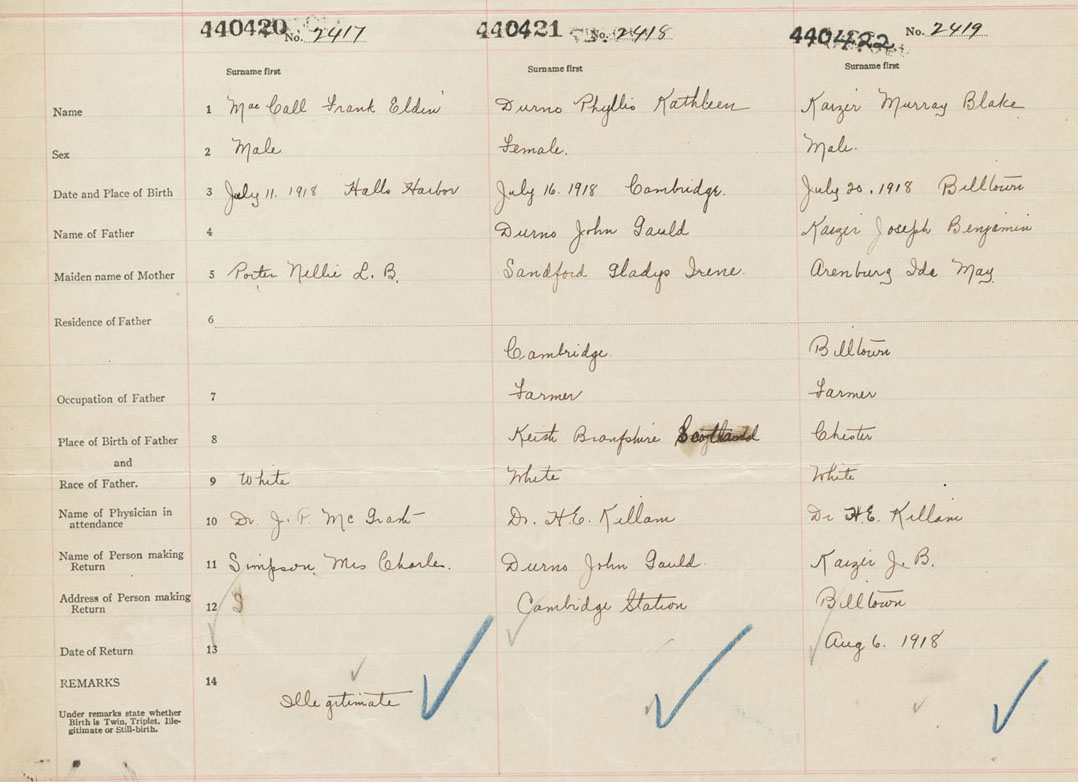 440420 No. 2417 440421 No. 2418 440422 No. 2419
Surname first Surname first Surname first
Name 1 Mac Call Frank Eldin Durno Phyllis Kathleen Kaizer Murray Blake
Sex 2 Male Female. Male.
Date and Place of Birth 3 July 11. 1918 Halls Harbor July 16. 1918 Cambridge. July 20. 1918 Billtown
Name of Father 4 Durno John Gauld Kaizer Joseph Benjamin
Maiden name of Mother 5 Porter Nellie L. B. Sandford Gladys Irene. Arenburg Ida May
Residence of Father 6
Cambridge. Billtown
Occupation of Father 7 Farmer Farmer
Place of Birth of Father 8 Scotland Chester
and
Race of Father. 9 White White White
Name of Physician in
attendance 10 Dr. J. P. McGrath Dr. H.E. Killam Dr H.E. Killam
Name of Person making
Return 11 Simpson, Mrs Charles. Durno John Gauld Kaizer J. B.
Address of Person making
Return 12 Cambidge Station Billtown
Date of Return 13 Aug 6. 1918
REMARKS 14
Illegitimate
Under remarks state whether
Birth is Twin, Triplet, Ille-
gitimate or Still-birth.